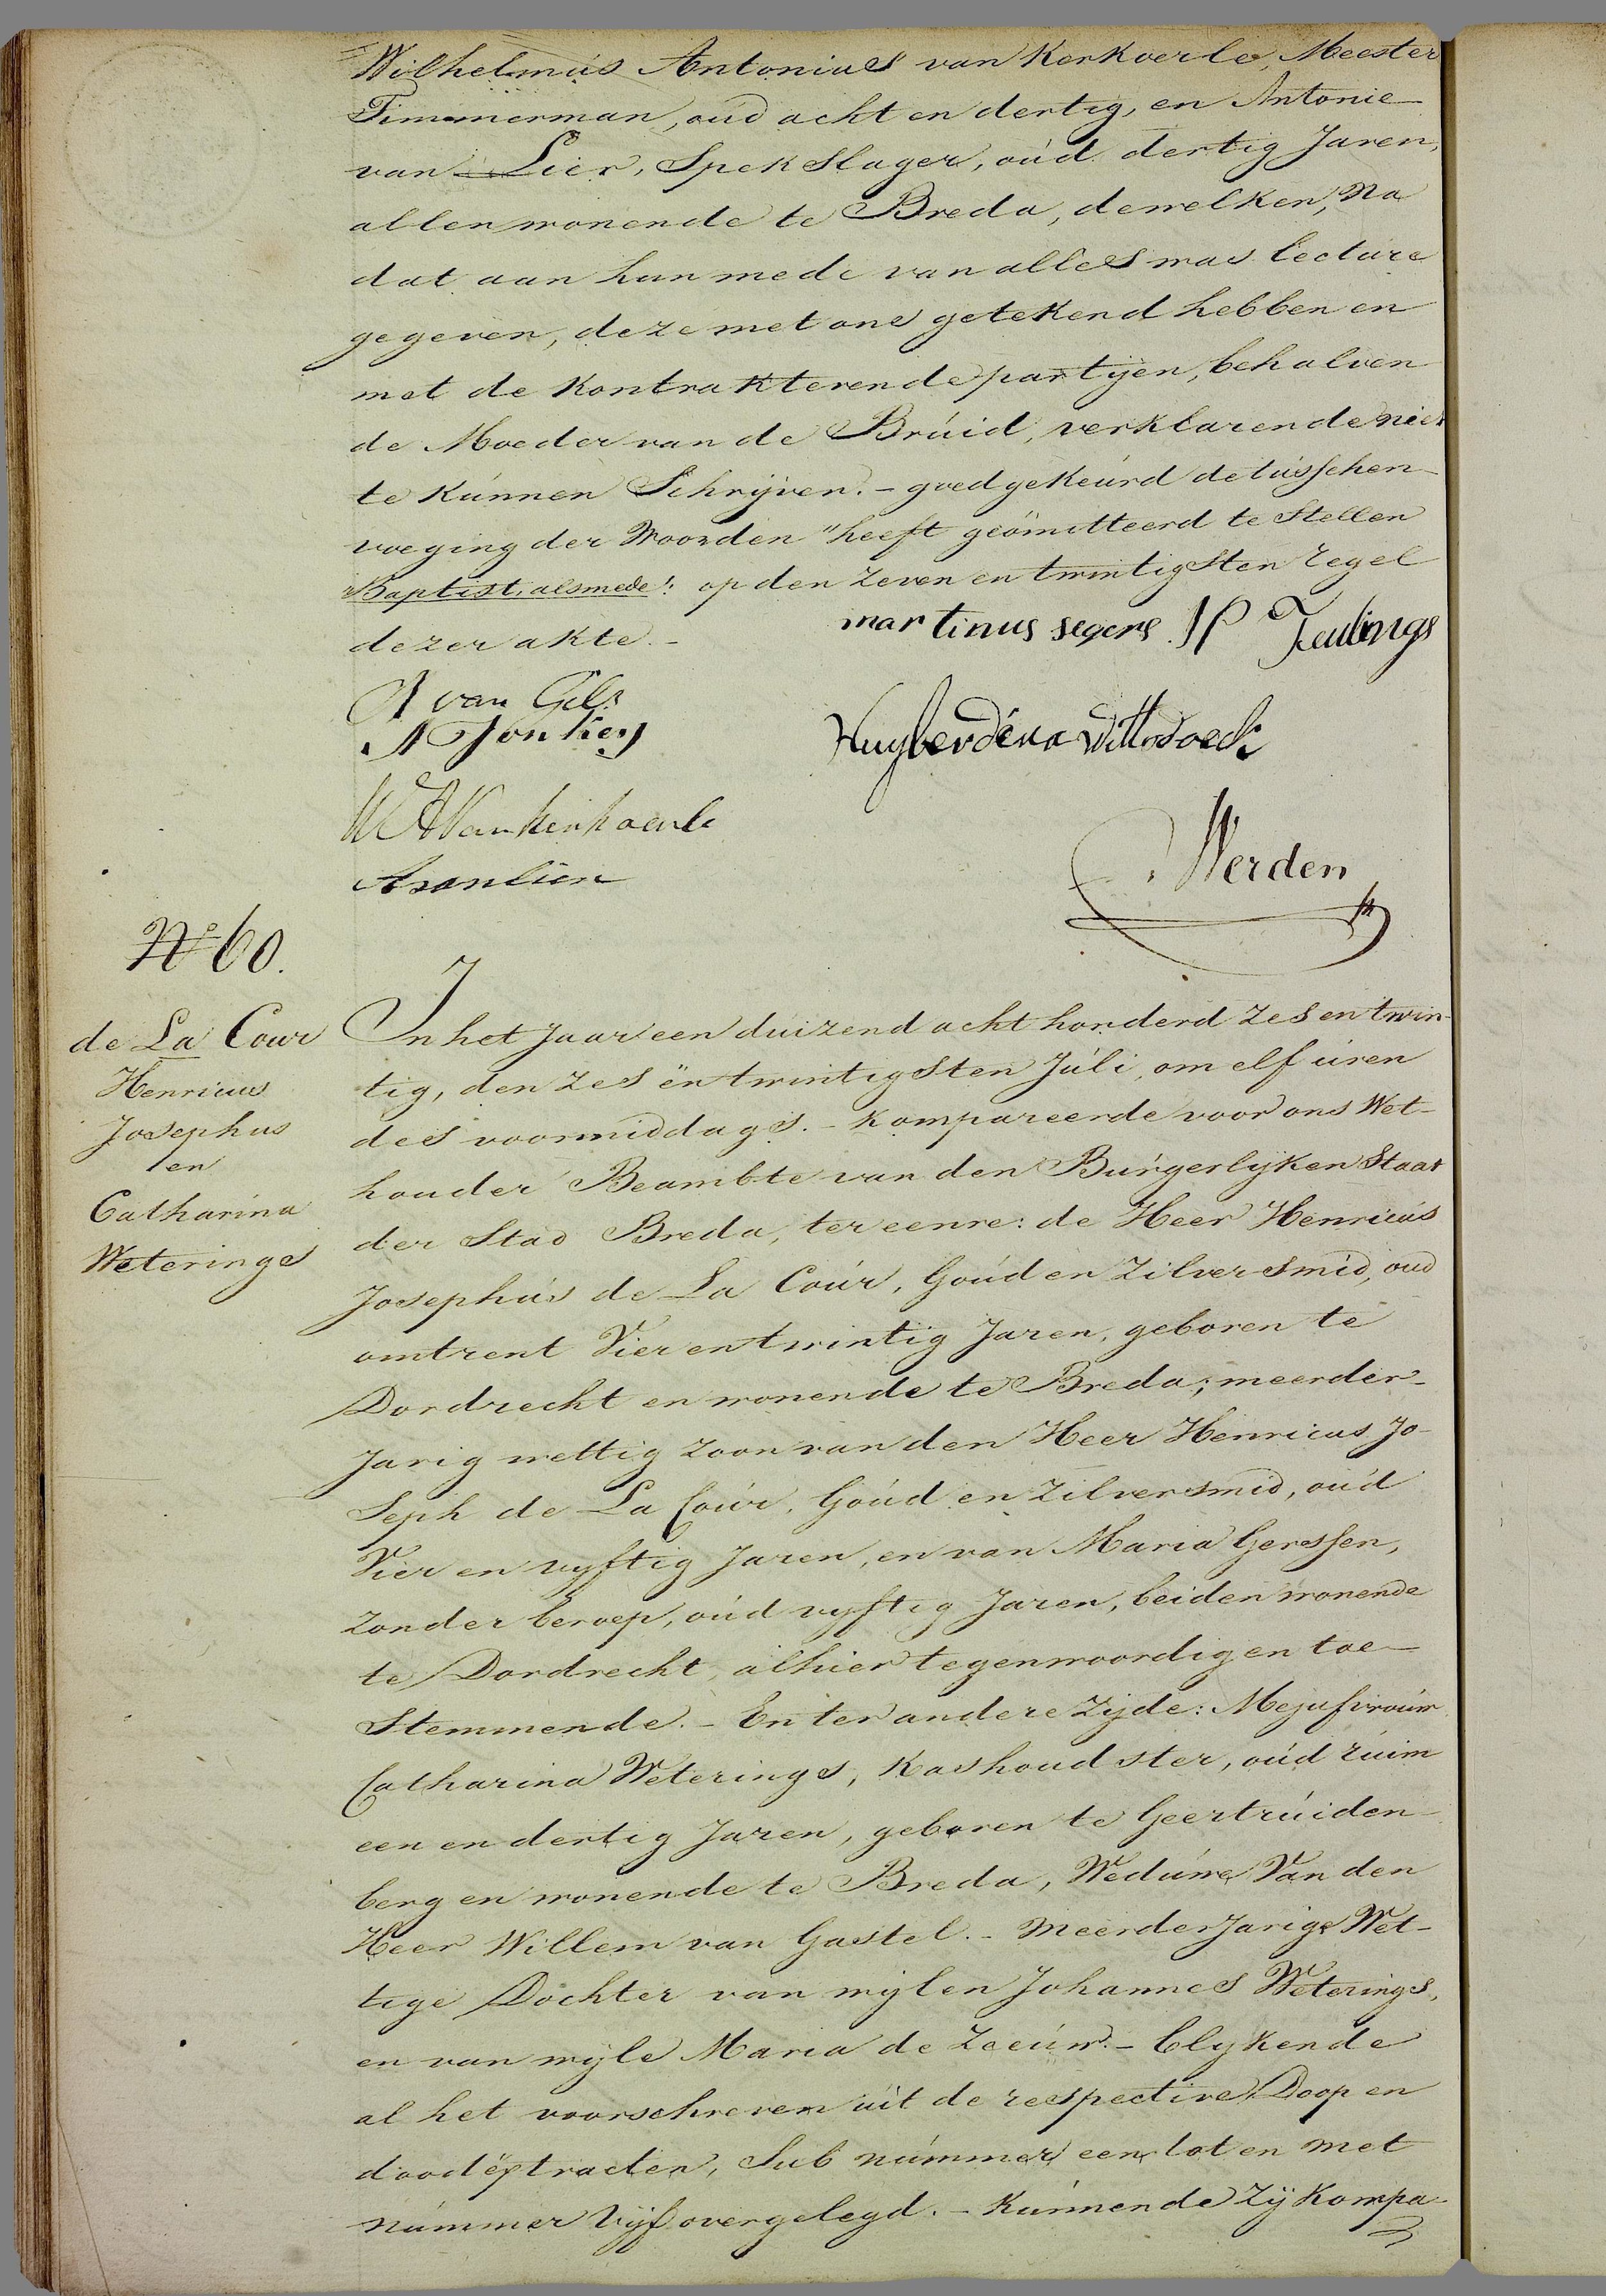 Wilhelmus Antonius van Kerkoerle, Meester
Timmerman, oud acht en dertig, en Antonie
van Lier, Spekslager, oud dertig Jaren,
allen wonende te Breda, dewelken, na
dat aan hun mede van alles was lecture
gegeven, deze met ons getekend hebben en
met de Kontrakterende partijen, behalven
de Moeder van de Bruid, verklarende niet
te kunnen Schrijven. - goedgekeurd de tusschen-
voeging der Woorden "heeft geömitteerd te Stellen
Baptist, alsmede": op den zeven en twintigsten regel
dezer akte. -
martinus segers JP Teulings
A van Gils
A Jonkers
Huyberdina Wittedoeck
WA Van Kerkoerle
A van Lier
Werden
No 60.
de La Cour
Henricus
Josephus
en
Catharina
Weterings
In het Jaar een duizend acht honderd zes en twin-
tig, den zes ën twintigsten Júli, om elf uren
des voormiddags. - Kompareerde voor ons Wet-
houder Beambte van den Burgerlyken Staat
der Stad Breda, ter eenre: de Heer Henricus
Josephus de La Cour, Goud en Zilversmid, oud
omtrent Vier en twintig Jaren, geboren te
Dordrecht en wonende te Breda; meerder-
Jarig wettig zoon van den Heer Henricus Jo-
seph de La Cour, Goud en Zilversmid, oud
Vier en vyftig Jaren, en van Maria Gerssen,
zonder beroep, oud vyftig Jaren, beiden wonende
te Dordrecht, alhier tegenwoordig en toe-
stemmende. - En ter andere zijde: Mejufvrouw
Catharina Weterings, Kashoudster, oud ruim
een en dertig Jaren, geboren te Geertruiden-
berg en wonende te Breda, Weduwe Van den
Heer Willem van Gastel. - Meerderjarige Wet-
tige Dochter van wylen Johannes Weterings,
en van wyle Maria de Zeeuw. - blykende
al het voorschreven uit de respective Doop en
doodëxtracten, Sub nummer een tot en met
nummer Vijf overgelegd. - Kunnende Zy Kompa-